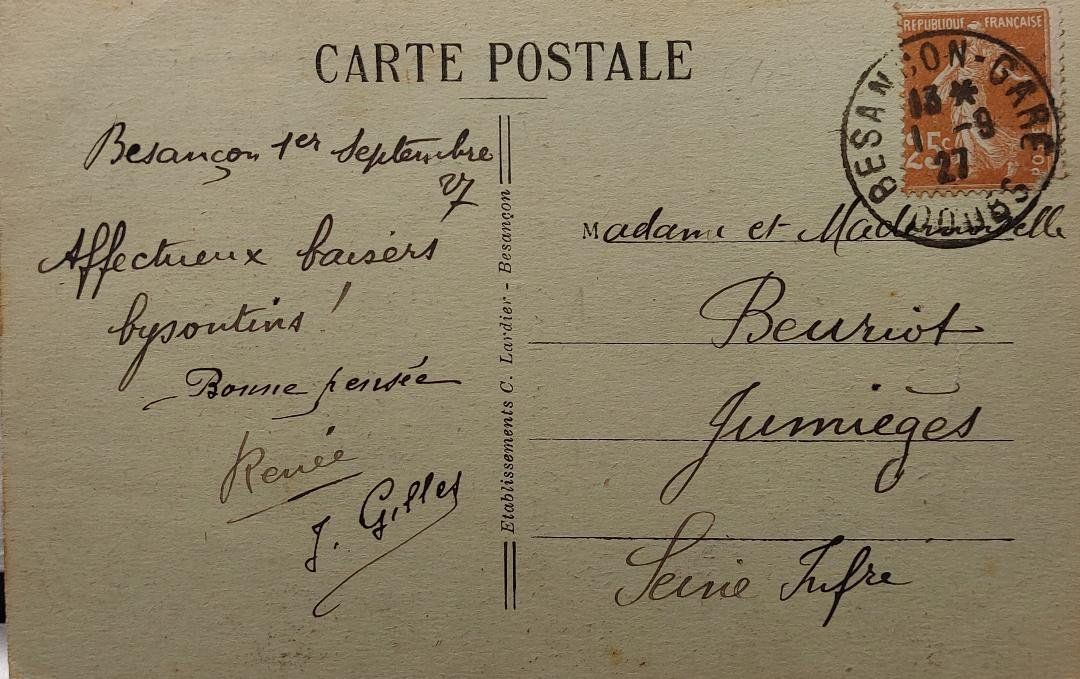 CARTE POSTALE
Besançon 1er Septembre
27
Affectueux baisers
bysontins !
Bonne pensée
Renée
J. Gilles
Etablissements C. Lardier - Besançon
REPUBLIQUE FRANÇAISE
25c
POSTES
BESANÇON-GARE
13 *
1 -9
27
DOUBS
Madame et Mademoiselle
Beuriot
Jumièges
Seine Infre